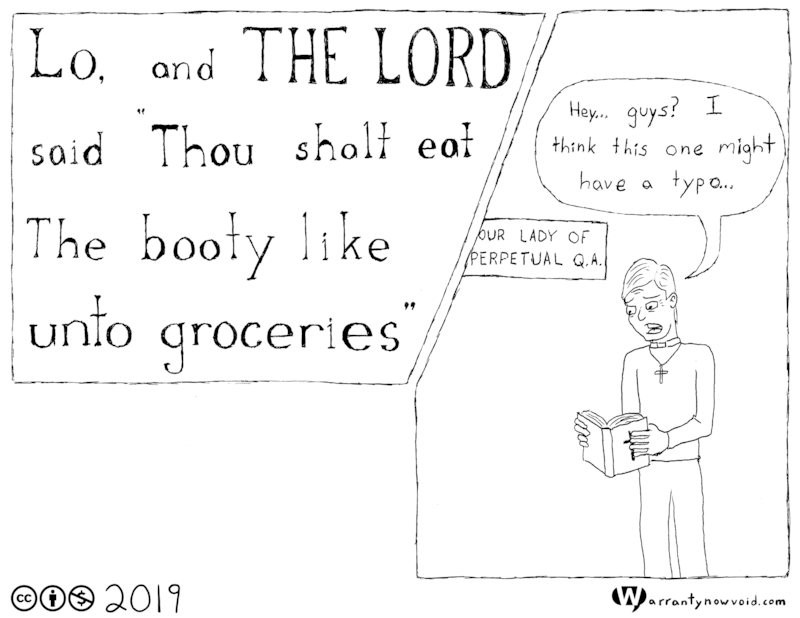 Lo, and THE LORD
said "Thou shalt eat
The booty like
unto groceries"
Hey... guys? I
think this one might
have a typo...
OUR LADY OF
PERPETUAL Q.A.
cc 2019
Warrantynowvoid.com